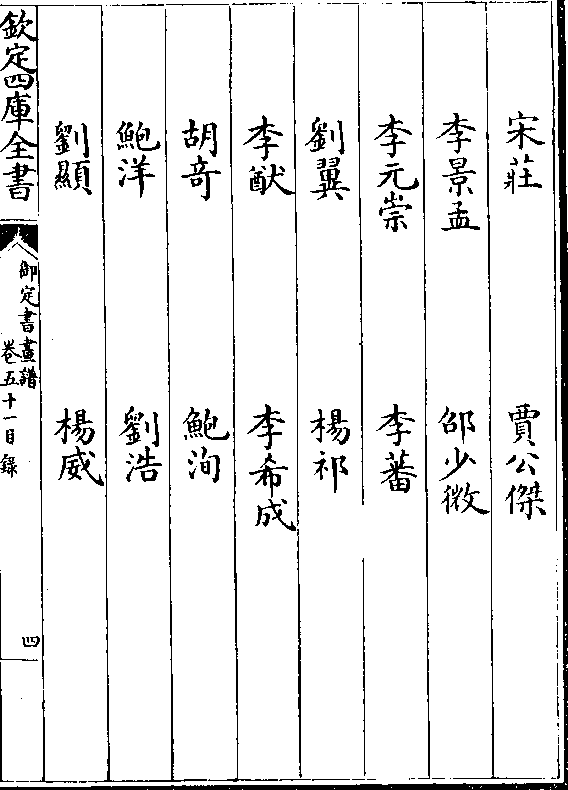 宋莊　賈公傑
李景孟　邵少微
李元崇　李蕃
劉翼　楊祁
李猷　李希成
胡奇　鮑洵
鮑洋　劉浩
劉顯　楊威
欽定四庫全書
御定書畫譜
卷五十一目錄
四